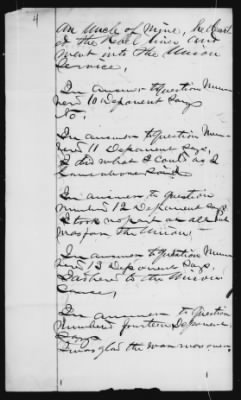 4
an Uncle of mine, he
at the Rebel lines and
went into the Union
Service,
In answer to question Num
berd 10 Deponent says
No.
In answer to question Num
berd 11 Deponent says,
I did what I could as I
have above said
In answer to question
Numberd 12 Deponent says
I took no part at all but
was for the Union,
In answer to question Num
berd 13 Deponent says,
I adhered to the Union
Cause,
In answer to question
Numberd fourteen Deponent
Says
I was glad the war was over